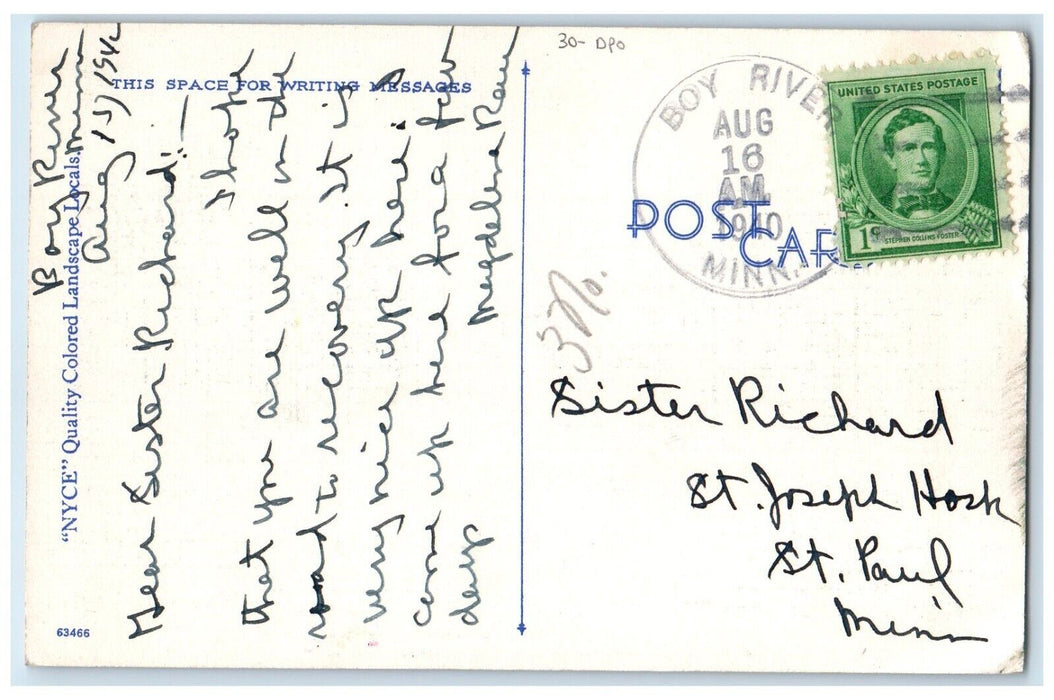 THIS SPACE FOR WRITING MESSAGES
"NYCE" Quality Colored Landscape Locals.
63466
Boy River
Minn
Aug 15, 194
Dear Sister Richard:—
I hope
that you are well on the
road to recovery. It is
very nice up here.
Come up here for a few
days
Magdalena
30- DPO
BOY RIVER
AUG
16
AM
1940
MINN.
UNITED STATES POSTAGE
1¢
STEPHEN COLLINS FOSTER
POST CAR
Sister Richard
St. Joseph Hosp
St. Paul
Minn